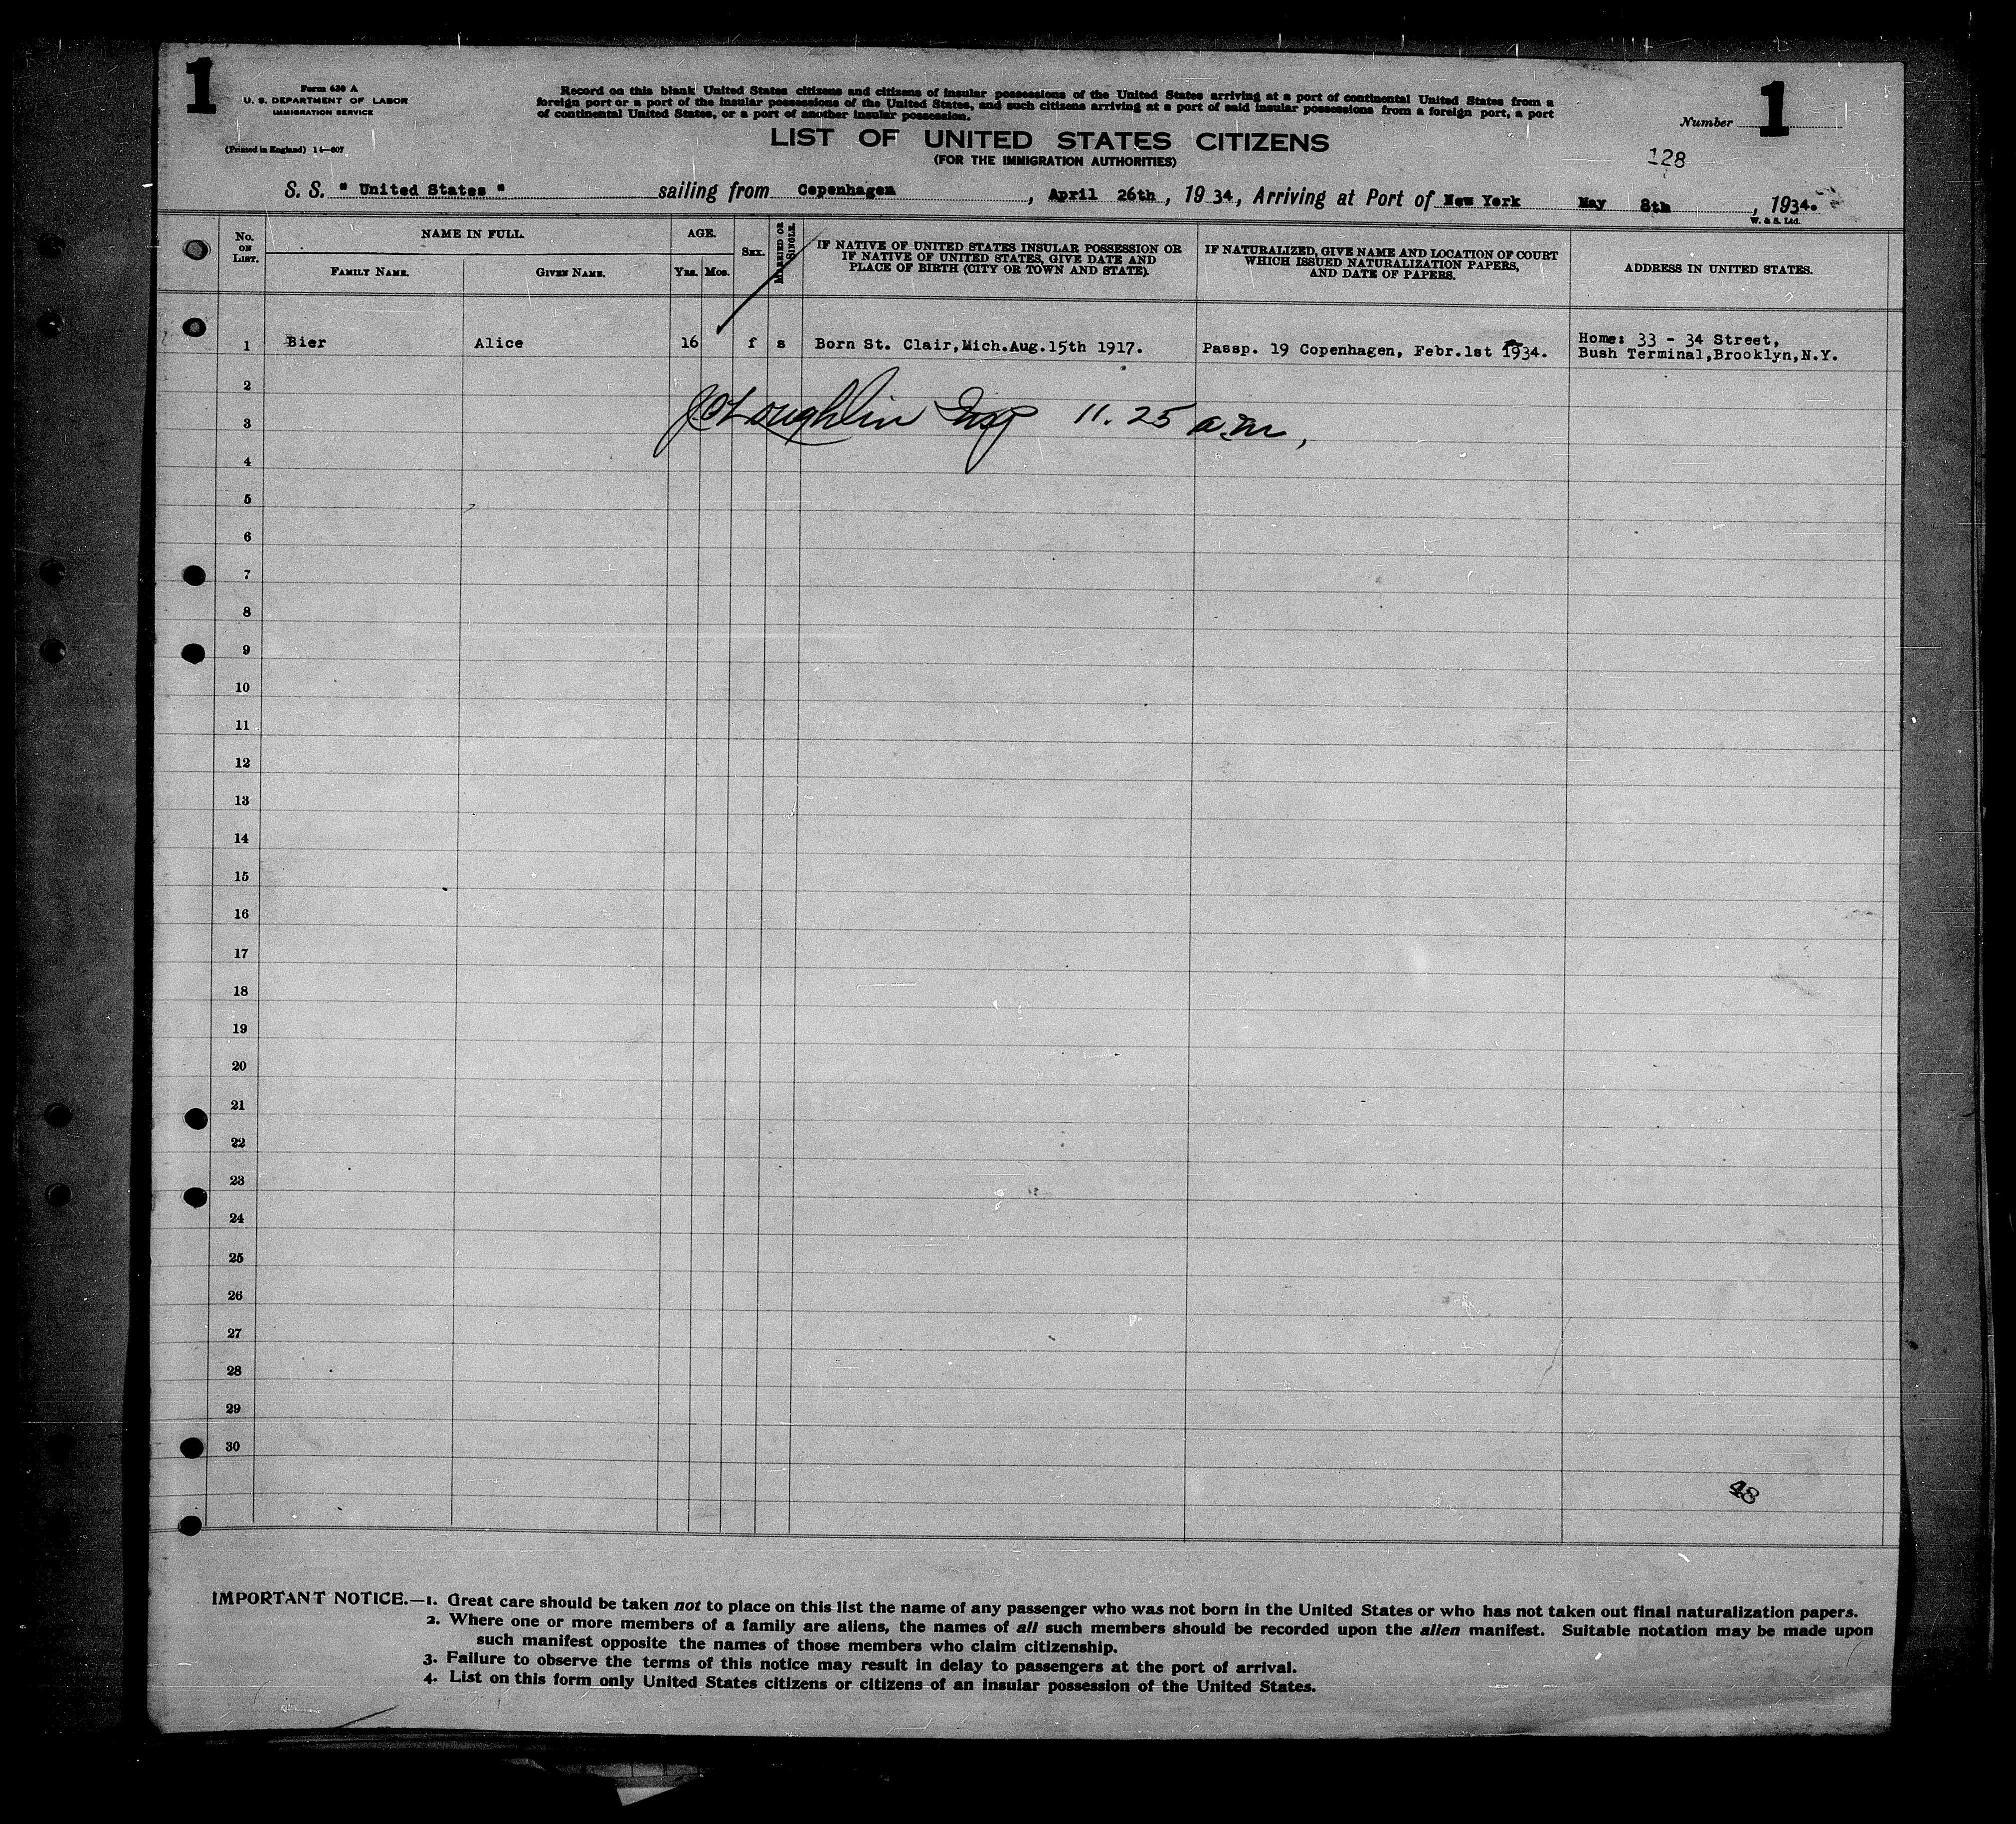 1
Form 630 A
U. S. DEPARTMENT OF LABOR
IMMIGRATION SERVICE
(Printed in England) 14—607
Record on this blank United States citizens and citizens of insular possessions of the United States arriving at a port of continental United States from a
foreign port or a port of the insular possessions of the United States, and such citizens arriving at a port of said insular possessions from a foreign port, a port
of continental United States, or a port of another insular possession.
LIST OF UNITED STATES CITIZENS
(FOR THE IMMIGRATION AUTHORITIES)
Number 1
128
S. S. " United States " sailing from Copenhagen, April 26th, 1934, Arriving at Port of New York May 8th, 1934.
W. & S. Ltd.
No. ON LIST.
NAME IN FULL.
FAMILY NAME.
GIVEN NAME.
AGE.
YRS. MOS.
SEX.
MARRIED OR SINGLE.
IF NATIVE OF UNITED STATES INSULAR POSSESSION OR
IF NATIVE OF UNITED STATES, GIVE DATE AND
PLACE OF BIRTH (CITY OR TOWN AND STATE).
IF NATURALIZED, GIVE NAME AND LOCATION OF COURT
WHICH ISSUED NATURALIZATION PAPERS,
AND DATE OF PAPERS.
ADDRESS IN UNITED STATES.
1 Bier Alice 16 f s Born St. Clair,Mich.Aug.15th 1917. Passp. 19 Copenhagen, Febr.1st 1934. Home: 33 - 34 Street,
Bush Terminal,Brooklyn,N.Y.
2
3 Loughlin Insp 11.25 a.m,
4
5
6
7
8
9
10
11
12
13
14
15
16
17
18
19
20
21
22
23
24
25
26
27
28
29
30
48
IMPORTANT NOTICE.—1. Great care should be taken not to place on this list the name of any passenger who was not born in the United States or who has not taken out final naturalization papers.
2. Where one or more members of a family are aliens, the names of all such members should be recorded upon the alien manifest. Suitable notation may be made upon
such manifest opposite the names of those members who claim citizenship.
3. Failure to observe the terms of this notice may result in delay to passengers at the port of arrival.
4. List on this form only United States citizens or citizens of an insular possession of the United States.